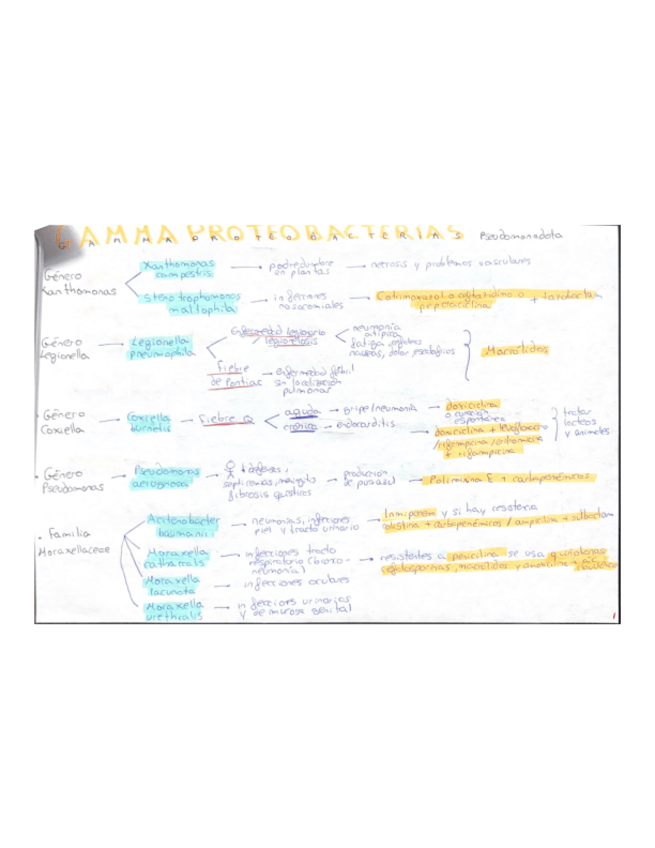 GAMMAPROTEOBACTERIAS Pseudomonadota
Género
Xanthomonas
Xanthomonas
campestris
podredumbre
en plantas
necrosis y problemas vasculares
Stenotrophomonas
maltophila
infecciones
nosocomiales
Cotrimoxazol o ceftazidima o
piperacilina
+ tazobactam
Género
Legionella
Legionella
pneumophila
Enfermedad legionario
legionelosis
neumonía
atípica
fatiga,
nauseas, dolor, escalofríos
Fiebre
de Pontiac
enfermedad febril
sin localización
pulmonar
Macrólidos
Género
Coxiella
Coxiella
burnetii
Fiebre Q
aguda
gripe/neumonía
doxiciclina
o curación
espontánea
crónica
endocarditis
doxiciclina + levofloxacino
/rifampicina
+ rifampicina
tratar
lacteos
y animales
Género
Pseudomonas
Pseudomonas
aeruginosa
septicemias, meningitis
fibrosis quísticas
producción
de pus azul
Polimixina E + carbapenémicos
Familia
Moraxellaceae
Acitenobacter
baumanii
neumonias, infecciones
piel y tracto urinario
Inmipenem y si hay resistencia
colistina + carbapenémicos / ampicilina + sulbactam
Moraxella
catharralis
infecciones tracto
respiratorio (bronco-
neumonía)
resistentes a penicilina se usa quinolonas
cefalosporinas, macrólidos y amoxicilina + ác.
Moraxella
lacunata
infecciones oculares
Moraxella
urethralis
infecciones urinarias
y de mucosa genital
1